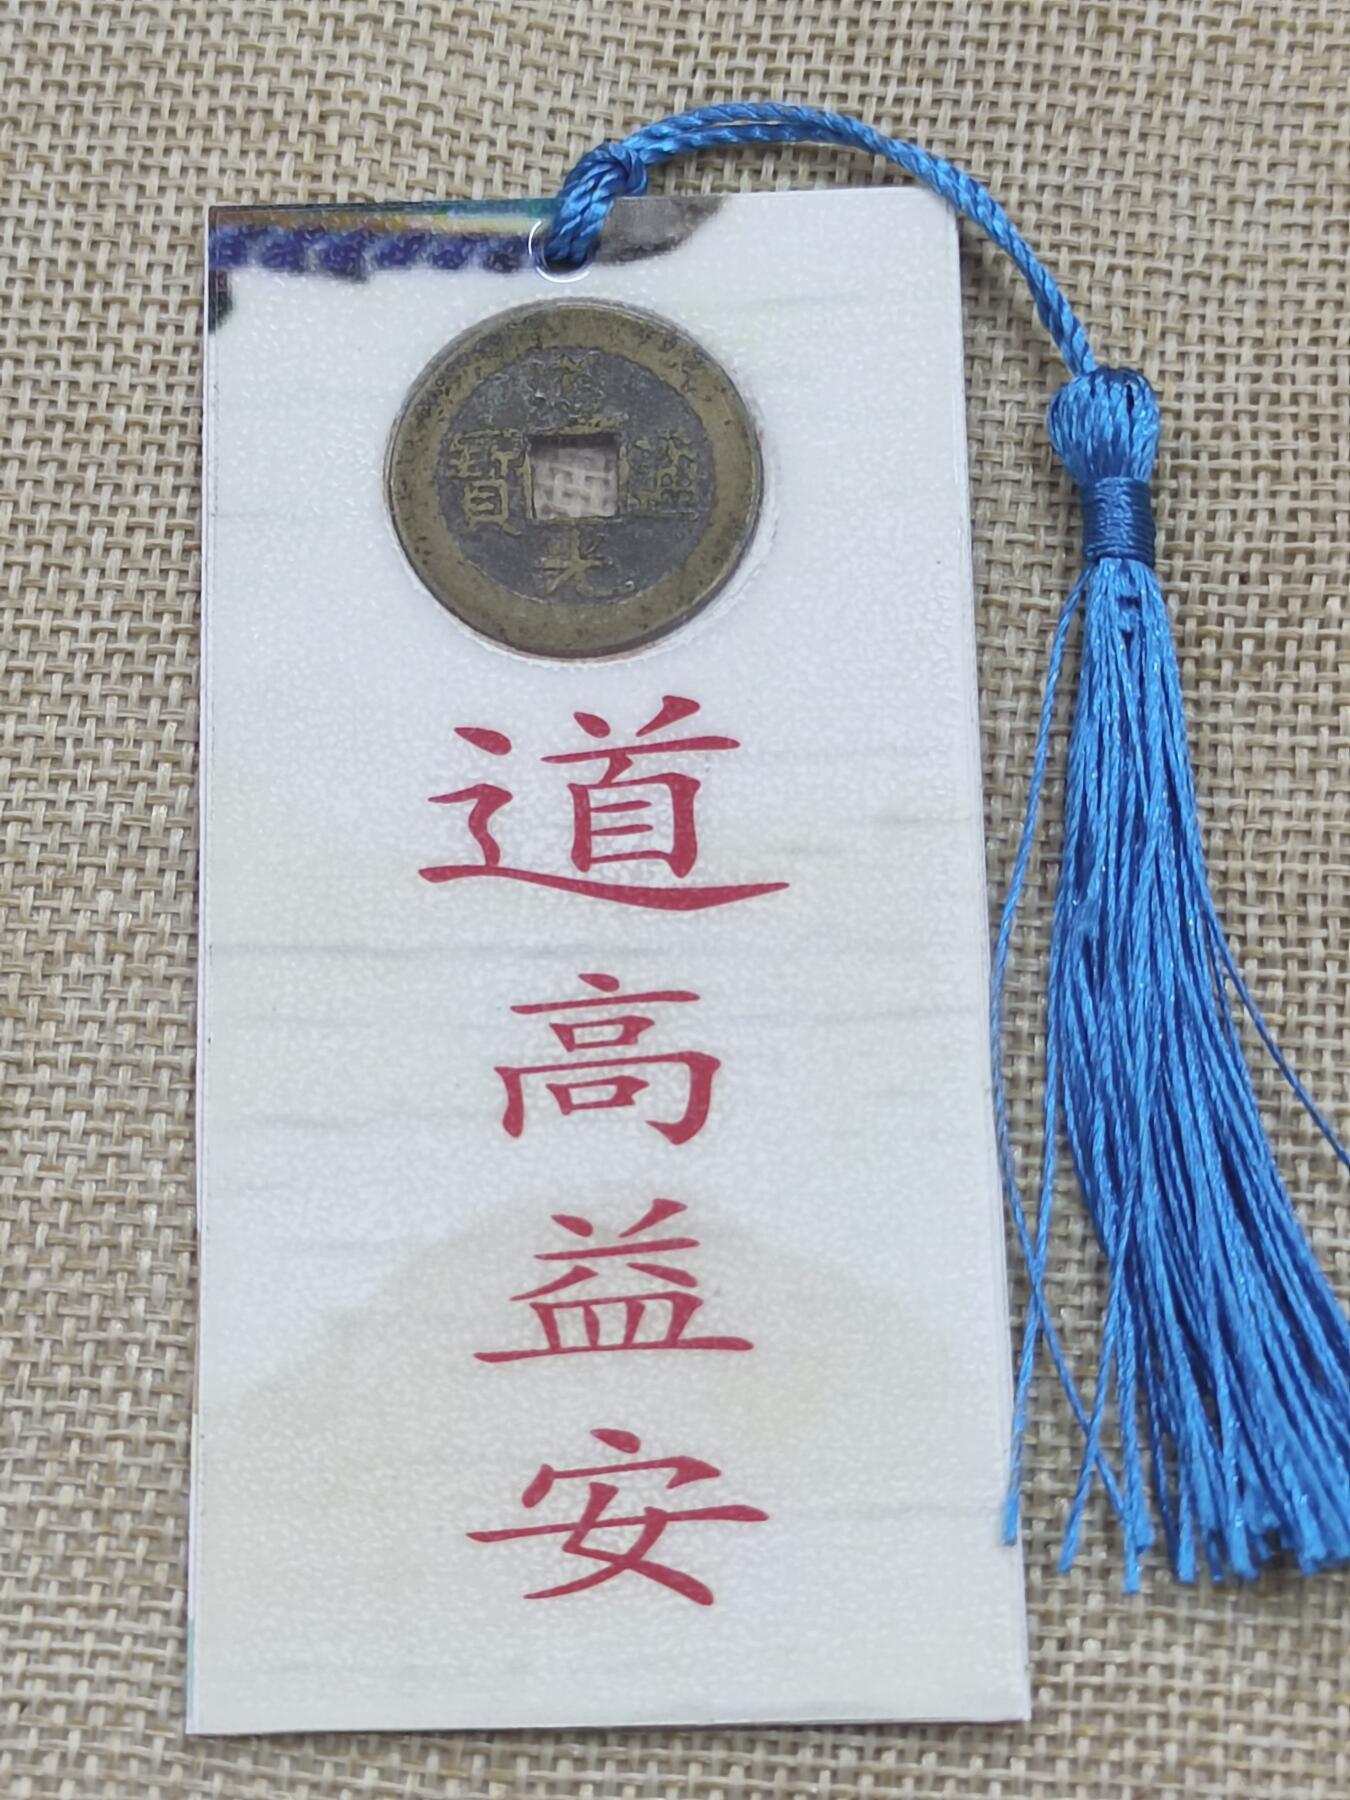 道光通寶
道
高
益
安